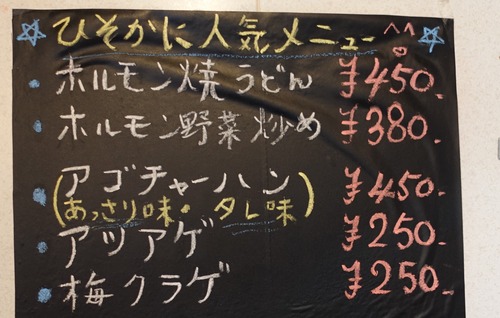 ☆ひそかに人気メニュー^^☆
・ホルモン焼うどん ¥450.
・ホルモン野菜炒め ¥380.
・アゴチャーハン ¥450.
(あっさり味・タレ味)
・アツアゲ ¥250.
・梅クラゲ ¥250.